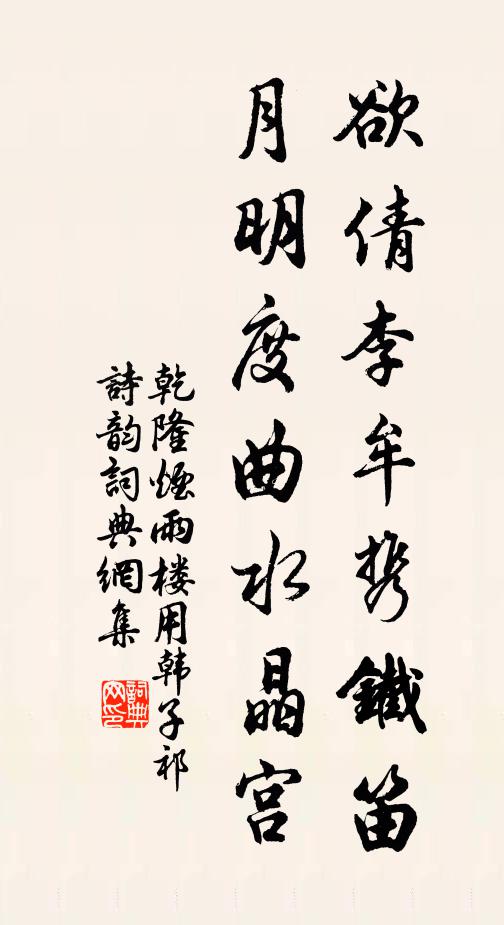 欲倩李牟携鐵笛
月明度曲水晶宫
乾隆煙雨楼用韩子祁
詩韵詞典網集
詞典
网印